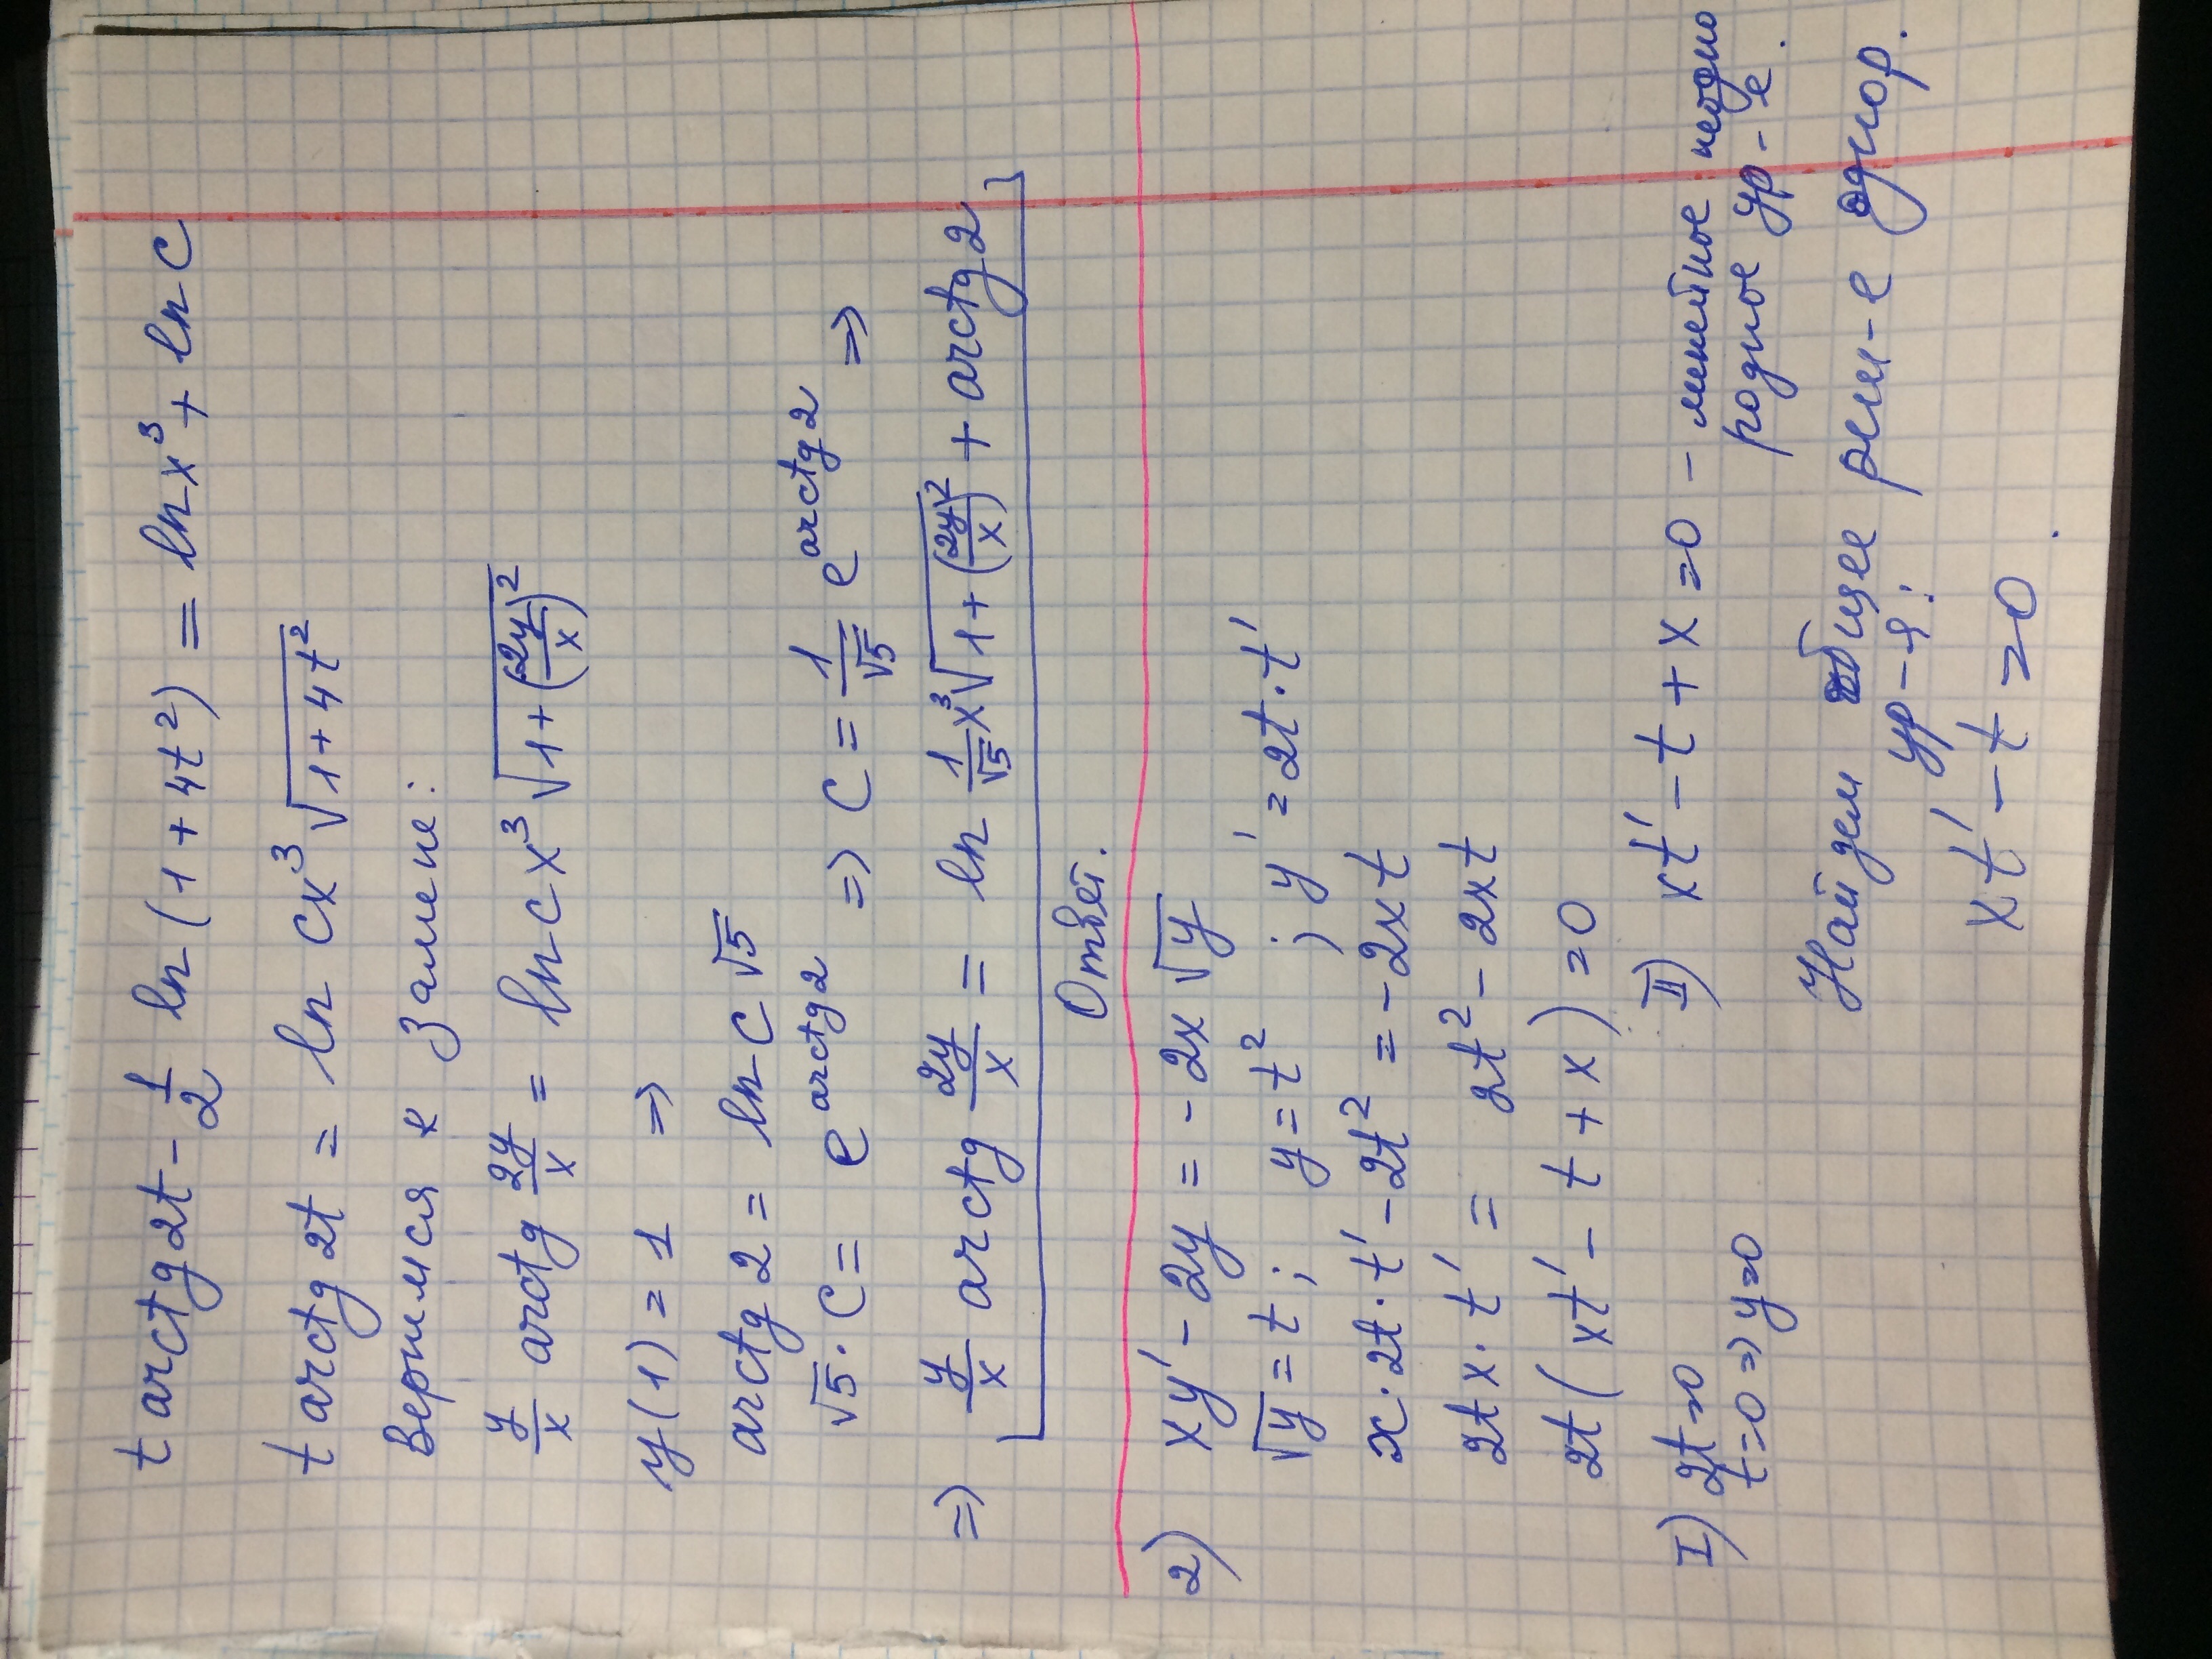 t arctg 2t - 1/2 ln (1 + 4t²) = ln x³ + ln C
t arctg 2t = ln Cx³ √(1 + 4t²)
Вернемся к замене:
y/x arctg 2y/x = ln Cx³ √(1 + (2y/x)²)
y(1) = 1 ⇒
arctg 2 = ln C √5
√5 · C = e^(arctg 2) ⇒ C = 1/√5 e^(arctg 2) ⇒
⇒ y/x arctg 2y/x = ln 1/√5 x³ √(1 + (2y/x)²) + arctg 2
Ответ.
2) xy' - 2y = - 2x √y
√y = t ; y = t² ; y' = 2t · t'
x · 2t · t' - 2t² = - 2xt
2tx · t' = 2t² - 2xt
2t ( xt' - t + x ) = 0
I) 2t = 0 II) xt' - t + x = 0 - линейное неодно
t = 0 ⇒ y = 0 родное ур-е.
Найдем общее реш-е однор.
ур-я:
xt' - t = 0 .